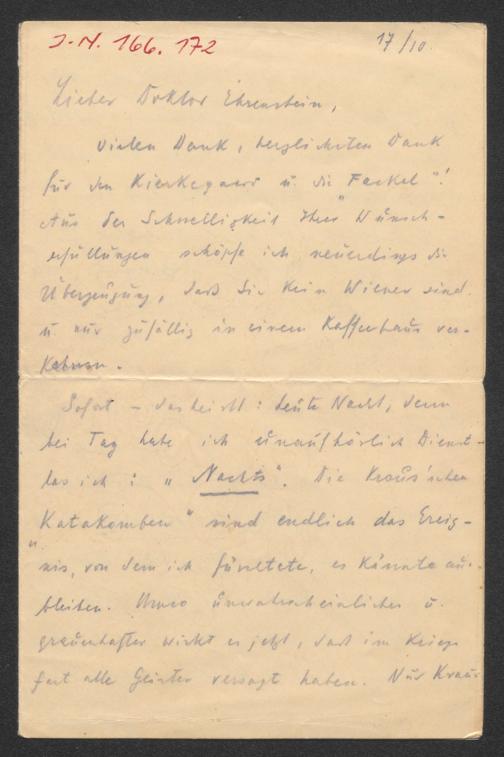 J.N. 166.172
17/10
Lieber Doktor Ehrenstein,
vielen Dank, herzlichsten Dank
für den Kierkegaard u. die „Fackel"!
Aus der Schnelligkeit Ihrer Wunsch-
erfüllungen schöpfe ich neuerdings die
Überzeugung, daß Sie kein Wiener sind
u. nur zufällig in einem Kaffeehaus ver-
kehren.
Sofort – das heißt: heute Nacht, denn
bei Tag habe ich unaufhörlich Dienst –
las ich: „Nachts". Die Kraus'schen
„Katakomben" sind endlich das Ereig-
nis, von dem ich fürchtete, es könnte aus-
bleiben. Umso unwahrscheinlicher u.
grauenhafter wirkt es jetzt, daß im Kriege
fast alle Geister versagt haben. Nur Kraus